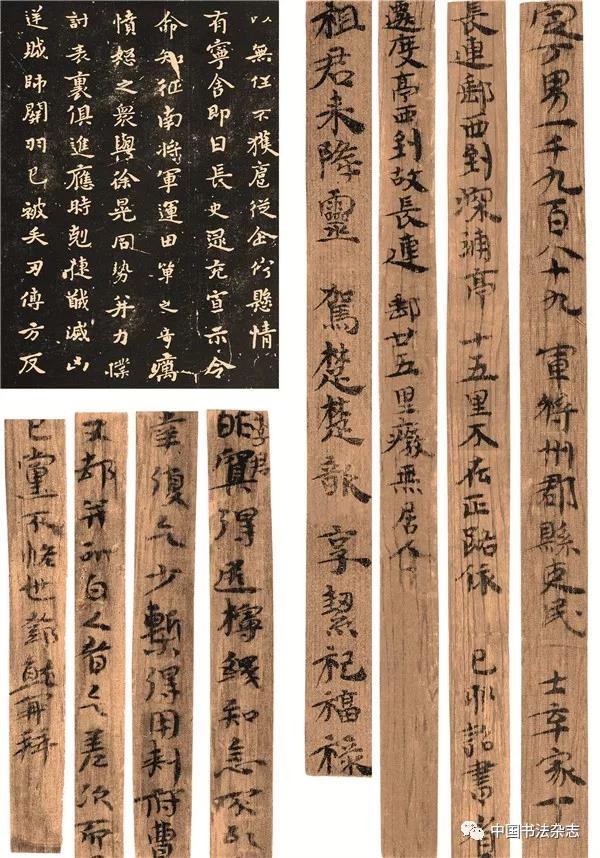 以無任不獲扈從企佇懸情
有寧舍即日長史逯充宣示令
命知征南將軍運田單之奇厲
憤怒之衆與徐晃同勢并力撲
討表裏俱進應時剋捷馘滅凶
逆賊帥關羽已被矢刃傅方反
定丁男一千九百八十九 軍將州郡縣吏民 士卒家丁
長連郵西到深浦亭十五里不在正路依 己卯詔書省
遷度亭西到故長連郵廿五里廢無居人
祖君未降靈 駕楚楚歌 享絜祀福祿
得 知念
復欠少暫得用 府曹
白人省 差次而
已黨不 世 再拜
中国书法杂志